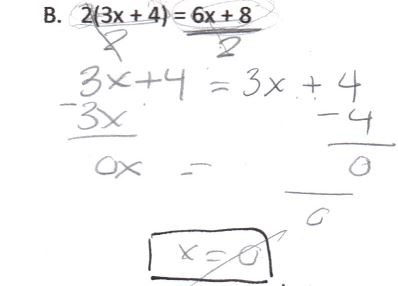 B. 2(3x + 4) = 6x + 8
2 2
3x + 4 = 3x + 4
-3x - 4
0x = 0
0
x = 0